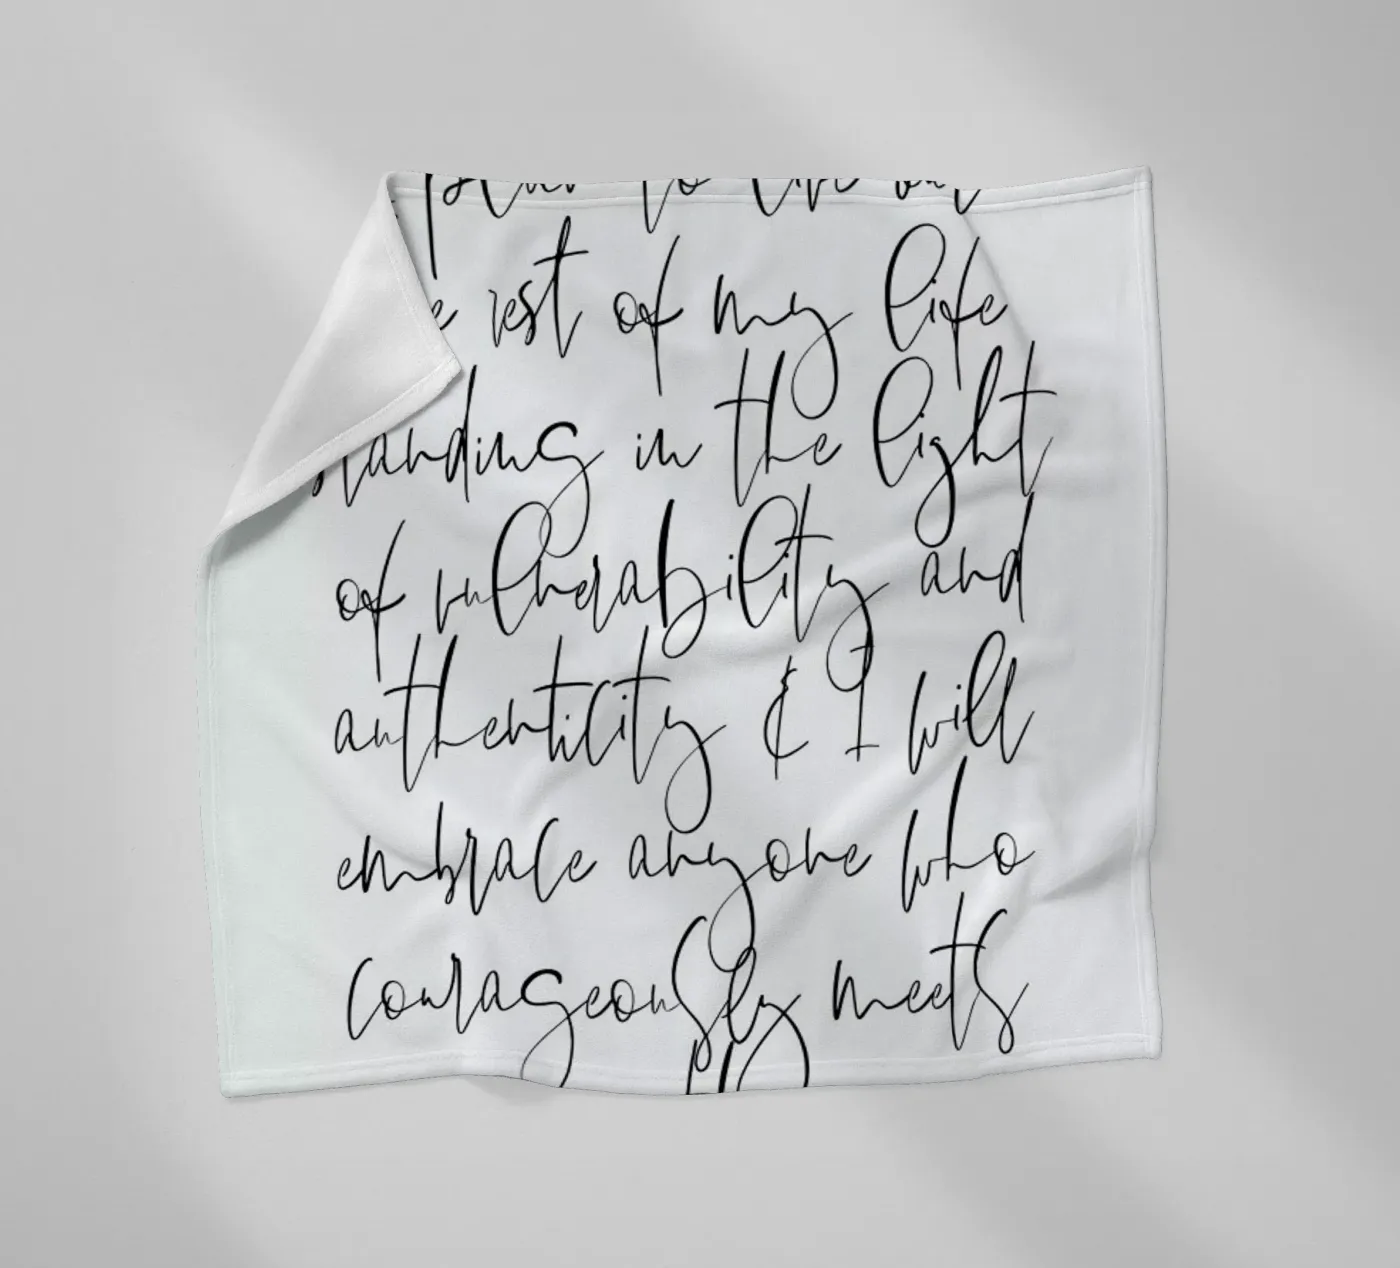 plan to live out
e rest of my life
standing in the light
of vulnerability and
authenticity & I will
embrace anyone who
courageously meets